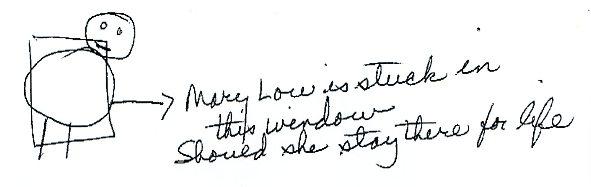 Mary Lou is stuck in
this window
Should she stay there for life